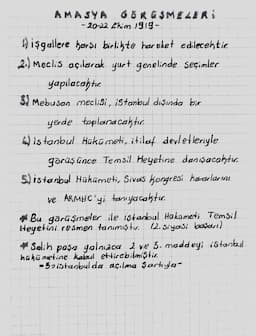 AMASYA GÖRÜŞMELERİ
-20-22 Ekim 1919-
1) işgallere karşı birlikte hareket edilecektir
2.) Meclis açılarak yurt genelinde seçimler
yapılacaktır
3.) Mebusan meclisi, istanbul dışında bir
yerde toplanacaktır.
4.) istanbul Hükümeti, itilaf devletleriyle
görüşünce Temsil Heyetine danışacaktır.
5.) istanbul Hükümeti, Sivas kongresi kararlarını
ve ARMHC'yi tanıyacaktır.
* Bu görüşmeler ile istanbul Hükümeti Temsil
Heyetini resmen tanımıştır. (2. siyasi başarı)
* Salih paşa yalnızca 2 ve 5. maddeyi istanbul
hükümetine kabul ettirebilmiştir.
-istanbulda açılma şartıyla-